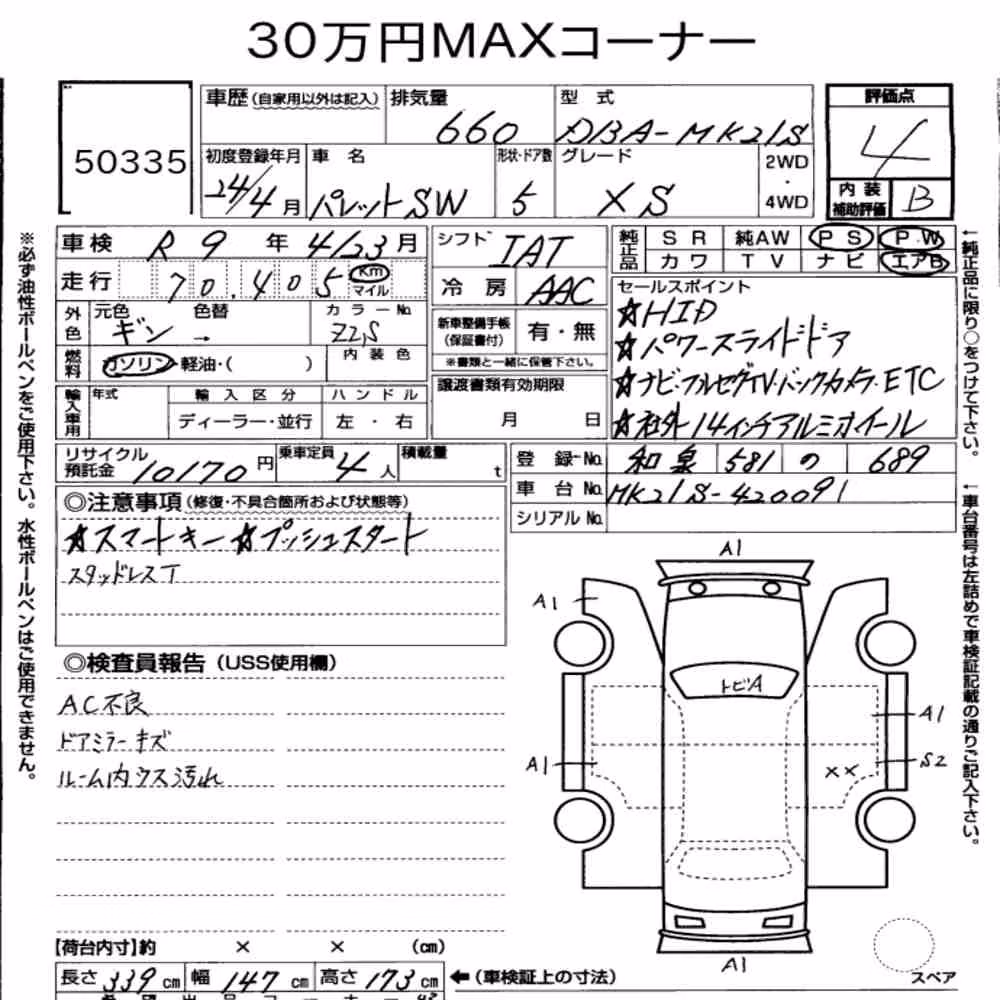 30万円MAXコーナー
50335
車歴 (自家用以外は記入) 排気量 660 型式 DBA-MK21S
初度登録年月 24/4月 車名 パレットSW 形状・ドア数 5 グレード XS 2WD ・ 4WD
評価点 4
内装補助評価 B
※必ず油性ボールペンをご使用下さい。水性ボールペンはご使用できません。
車検 R9年 4/23月
走行 70.405 Km マイル
外色 元色 ギン 色替 → カラーNo. Z2S
燃料 ガソリン・軽油・( ) 内装色
輸入車用 年式 輸入区分 ディーラー・並行 ハンドル 左・右
リサイクル預託金 10170円 乗車定員 4人 積載量 t
シフト IAT
冷房 AAC
新車整備手帳(保証書付) 有・無
※書類と一緒に保管下さい。
譲渡書類有効期限
月 日
純正品 SR 純AW PS PW
カワ TV ナビ エアB
セールスポイント
☆HID
☆パワースライドドア
☆ナビ・フルセグTV・バックカメラ・ETC
☆社外14インチアルミホイール
登録No. 和泉 581 の 689
車台No. MK21S-420091
シリアルNo.
←純正品に限り○をつけて下さい。
←車台番号は左詰めで車検証記載の通りご記入下さい。
◎注意事項(修復・不具合箇所および状態等)
☆スマートキー ☆プッシュスタート
スタッドレスT
◎検査員報告(USS使用欄)
AC不良
ドアミラーキズ
ルーム内ウス汚れ
A1
A1
トビA
A1
A1
S2
××
A1
スペア
【荷台内寸】約 × × (cm)
長さ 339cm 幅 147cm 高さ 173cm ←(車検証上の寸法)